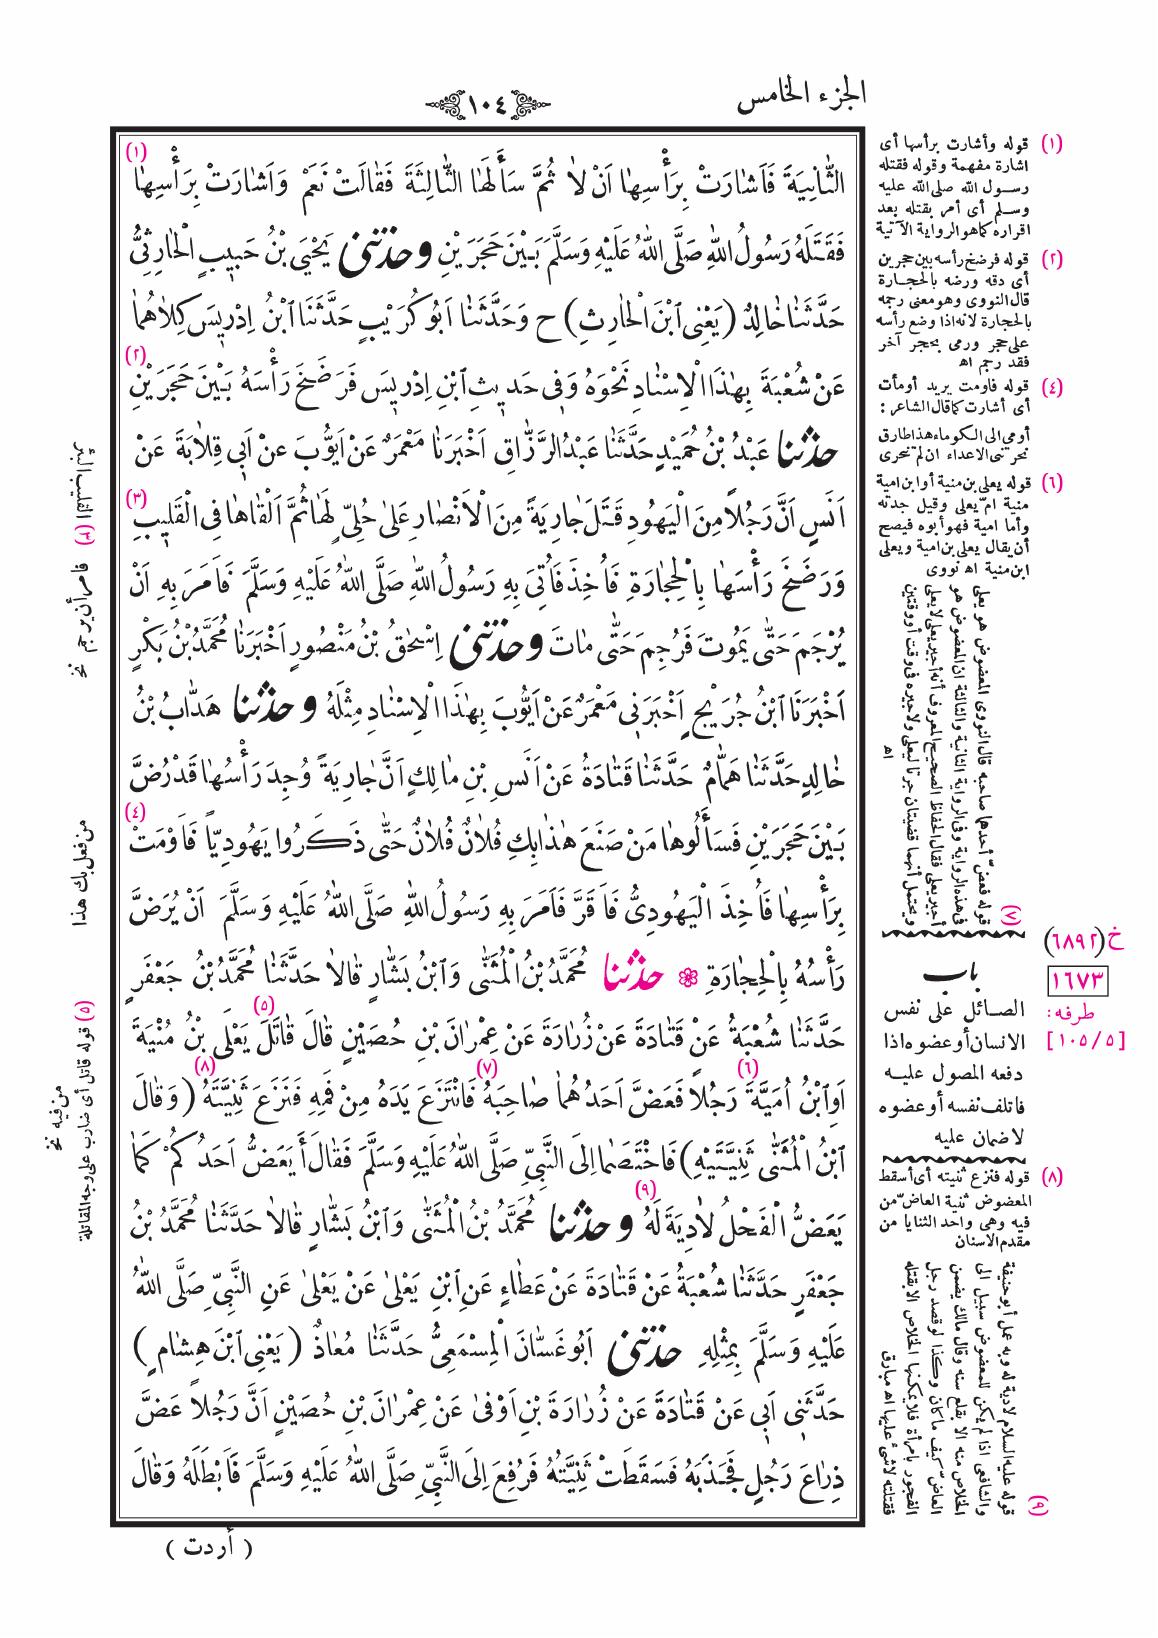 الجزء الخامس
١٠٤
الثَّانِيَةَ فَاَشَارَتْ بِرَأْسِهَا اَنْ لَا ثُمَّ سَأَلَهَا الثَّالِثَةَ فَقَالَتْ نَعَمْ وَاَشَارَتْ بِرَأْسِهَا (١)
فَقَتَلَهُ رَسُولُ اللهِ صَلَّى اللهُ عَلَيْهِ وَسَلَّمَ بَيْنَ حَجَرَيْنِ وحَدَّثَنِى يَحْيَى بْنُ حَبِيبٍ الْحَارِثِىُّ
حَدَّثَنَا خَالِدٌ (يَعْنِى ٱبْنَ الْحَارِثِ) ح وَحَدَّثَنَا اَبُو كُرَيْبٍ حَدَّثَنَا ٱبْنُ اِدْرِيسَ كِلَاهُمَا
عَنْ شُعْبَةَ بِهٰذَا الْاِسْنَادِ نَحْوَهُ وَفِى حَدِيثِ ٱبْنِ اِدْرِيسَ فَرَضَخَ رَأْسَهُ بَيْنَ حَجَرَيْنِ (٢)
حَدَّثَنَا عَبْدُ بْنُ حُمَيْدٍ حَدَّثَنَا عَبْدُ الرَّزَّاقِ اَخْبَرَنَا مَعْمَرٌ عَنْ اَيُّوبَ عَنْ اَبِى قِلَابَةَ عَنْ
اَنَسٍ اَنَّ رَجُلًا مِنَ الْيَهُودِ قَتَلَ جَارِيَةً مِنَ الْاَنْصَارِ عَلىٰ حُلِىٍّ لَهَا ثُمَّ اَلْقَاهَا فِى الْقَلِيبِ (٣)
وَرَضَخَ رَأْسَهَا بِالْحِجَارَةِ فَاُخِذَ فَاُتِىَ بِهِ رَسُولُ اللهِ صَلَّى اللهُ عَلَيْهِ وَسَلَّمَ فَاَمَرَ بِهِ اَنْ
يُرْجَمَ حَتّٰى يَمُوتَ فَرُجِمَ حَتّٰى مَاتَ وحَدَّثَنِى اِسْحٰقُ بْنُ مَنْصُورٍ اَخْبَرَنَا مُحَمَّدُ بْنُ بَكْرٍ
اَخْبَرَنَا ٱبْنُ جُرَيْجٍ اَخْبَرَنِى مَعْمَرٌ عَنْ اَيُّوبَ بِهٰذَا الْاِسْنَادِ مِثْلَهُ وحَدَّثَنَا هَدَّابُ بْنُ
خَالِدٍ حَدَّثَنَا هَمَّامٌ حَدَّثَنَا قَتَادَةُ عَنْ اَنَسِ بْنِ مَالِكٍ اَنَّ جَارِيَةً وُجِدَ رَأْسُهَا قَدْ رُضَّ
بَيْنَ حَجَرَيْنِ فَسَأَلُوهَا مَنْ صَنَعَ هٰذَا بِكِ فُلَانٌ فُلَانٌ حَتّٰى ذَكَرُوا يَهُودِيًّا فَاَوْمَتْ (٤)
بِرَأْسِهَا فَاُخِذَ الْيَهُودِىُّ فَاَقَرَّ فَاَمَرَ بِهِ رَسُولُ اللهِ صَلَّى اللهُ عَلَيْهِ وَسَلَّمَ اَنْ يُرَضَّ
رَأْسُهُ بِالْحِجَارَةِ ❁ حَدَّثَنَا مُحَمَّدُ بْنُ الْمُثَنّٰى وَٱبْنُ بَشَّارٍ قَالَا حَدَّثَنَا مُحَمَّدُ بْنُ جَعْفَرٍ
حَدَّثَنَا شُعْبَةُ عَنْ قَتَادَةَ عَنْ زُرَارَةَ عَنْ عِمْرَانَ بْنِ حُصَيْنٍ قَالَ قَاتَلَ (٥) يَعْلَى بْنُ مُنْيَةَ
اَوِ ٱبْنُ اُمَيَّةَ (٦) رَجُلًا فَعَضَّ اَحَدُهُمَا صَاحِبَهُ (٧) فَانْتَزَعَ يَدَهُ مِنْ فَمِهِ فَنَزَعَ ثَنِيَّتَهُ (٨) (وَقَالَ
ٱبْنُ الْمُثَنّٰى ثَنِيَّتَيْهِ) فَاخْتَصَمَا اِلَى النَّبِىِّ صَلَّى اللهُ عَلَيْهِ وَسَلَّمَ فَقَالَ أَيَعَضُّ اَحَدُكُمْ كَمَا
يَعَضُّ الْفَحْلُ لَادِيَةَ لَهُ (٩) وحَدَّثَنَا مُحَمَّدُ بْنُ الْمُثَنّٰى وَٱبْنُ بَشَّارٍ قَالَا حَدَّثَنَا مُحَمَّدُ بْنُ
جَعْفَرٍ حَدَّثَنَا شُعْبَةُ عَنْ قَتَادَةَ عَنْ عَطَاءٍ عَنِ ٱبْنِ يَعْلىٰ عَنْ يَعْلىٰ عَنِ النَّبِىِّ صَلَّى اللهُ
عَلَيْهِ وَسَلَّمَ بِمِثْلِهِ حَدَّثَنِى اَبُو غَسَّانَ الْمِسْمَعِىُّ حَدَّثَنَا مُعَاذٌ (يَعْنِى ٱبْنَ هِشَامٍ)
حَدَّثَنِى اَبِى عَنْ قَتَادَةَ عَنْ زُرَارَةَ بْنِ اَوْفىٰ عَنْ عِمْرَانَ بْنِ حُصَيْنٍ اَنَّ رَجُلًا عَضَّ
ذِرَاعَ رَجُلٍ فَجَذَبَهُ فَسَقَطَتْ ثَنِيَّتُهُ فَرُفِعَ اِلَى النَّبِىِّ صَلَّى اللهُ عَلَيْهِ وَسَلَّمَ فَاَبْطَلَهُ وَقَالَ
( أردت )
(١) قوله وأشارت برأسها أى
اشارة مفهمة وقوله فقتله
رسول الله صلى الله عليه
وسلم أى أمر بقتله بعد
اقراره كماهو الرواية الآتية
(٢) قوله فرضخ رأسه بين حجرين
أى دقه ورضه بالحجارة
قال النووى وهو معنى رجمه
بالحجارة لانه اذا وضع رأسه
على حجر ورمى بحجر آخر
فقد رجم اه
(٤) قوله فاومت يريد أومأت
أى أشارت كما قال الشاعر :
أومى الى الكوماء هذا طارق
نحرتنى الاعداء ان لم تنحرى
(٦) قوله يعلى بن منية أو ابن امية
منية امّ يعلى وقيل جدته
وأما امية فهو أبوه فيصح
أن يقال يعلى بن امية ويعلى
ابن منية اه نووى
(٧) قوله فعضّ أحدهما صاحبه قال النووى المعضوض هو يعلى
فى هذه الرواية وفى الرواية الثانية والثالثة ان المعضوض هو
أجير يعلى فقال الحفاظ الصحيح المعروف أنه أجير يعلى لا يعلى
ويحتمل أنهما قضيتان جرتا ليعلى ولاجيره فى وقت أو وقتين
اه
خ (٦٨٩٢)
١٦٧٣
طرفه:
[١٠٥/٥]
باب
الصائل على نفس
الانسان أو عضوه اذا
دفعه المصول عليه
فاتلف نفسه أو عضوه
لا ضمان عليه
(٨) قوله فنزع ثنيته أى أسقط
المعضوض ثنية العاضّ من
فيه وهى واحد الثنايا من
مقدم الاسنان
(٩) قوله عليه السلام لادية له وبه عمل أبو حنيفة
والشافعى اذا لم يكن للمعضوض سبيل الى
الخلاص منه الا بقلع سنه وقال مالك يضمن
العاضّ كيف ما كان وكذا لو قصد رجل
الفجور بامرأة فلا يمكنها الخلاص الا بقتله
فقتلته لا شىء عليها اه مبارق
فامر أن يرجم نخ
من فعل بك هذا
(٥) قوله قاتل أى ضارب على وجه المقاتلة
من فيه نخ